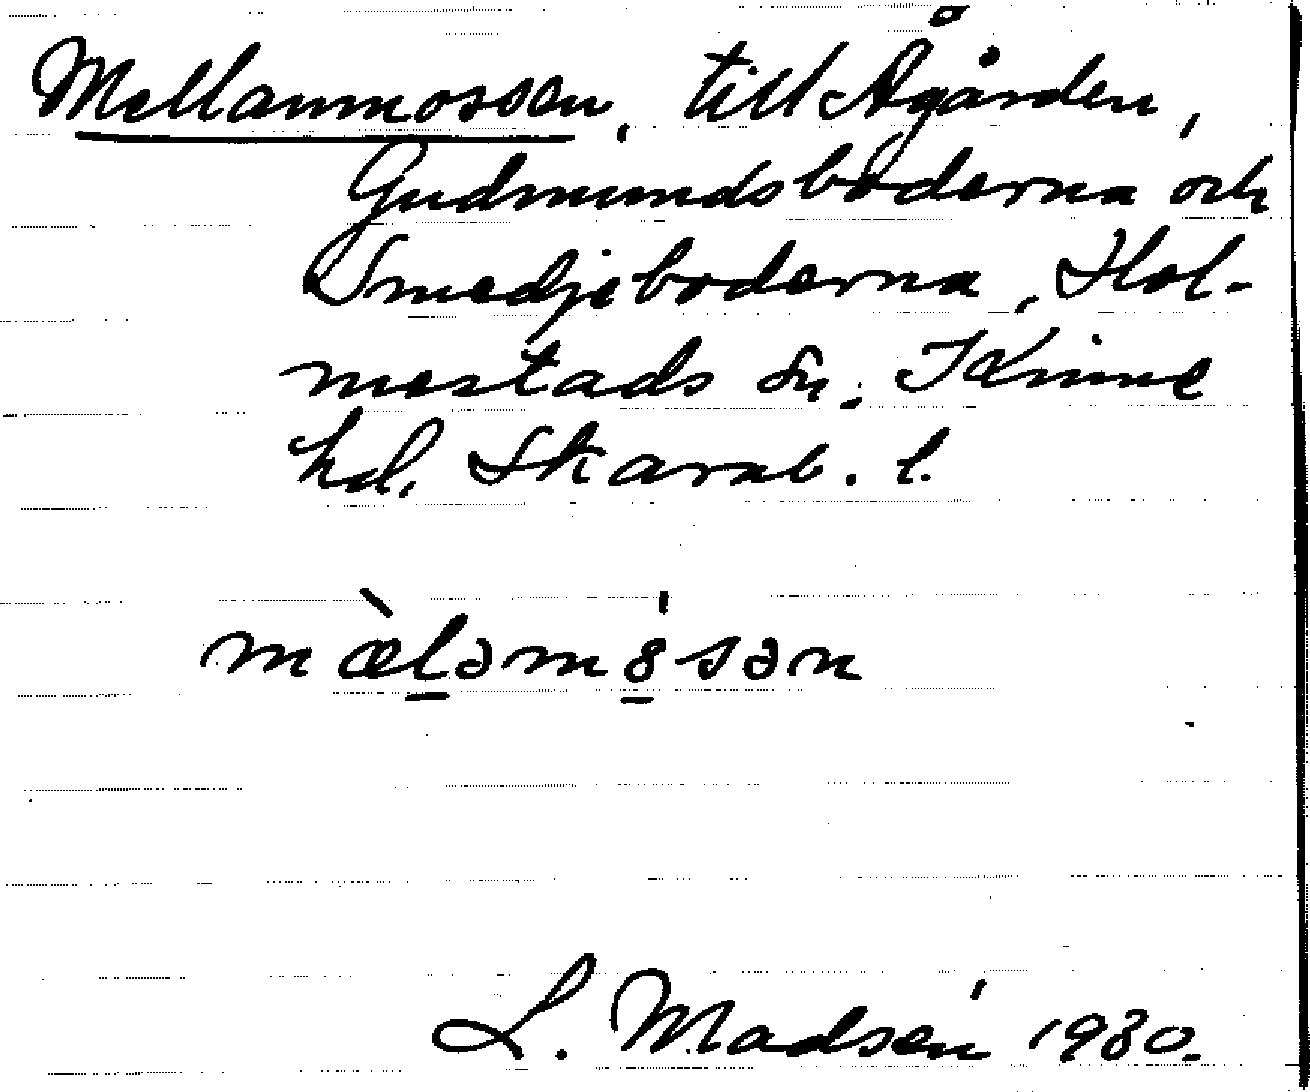 Mellanmossen, till Ågården,
Gudmundsboderna och
Smedjeboderna, Hol-
mestads sn, Kinne
hd, Skarab. l.
mæ̀ləmósən
L. Madsén 1930.